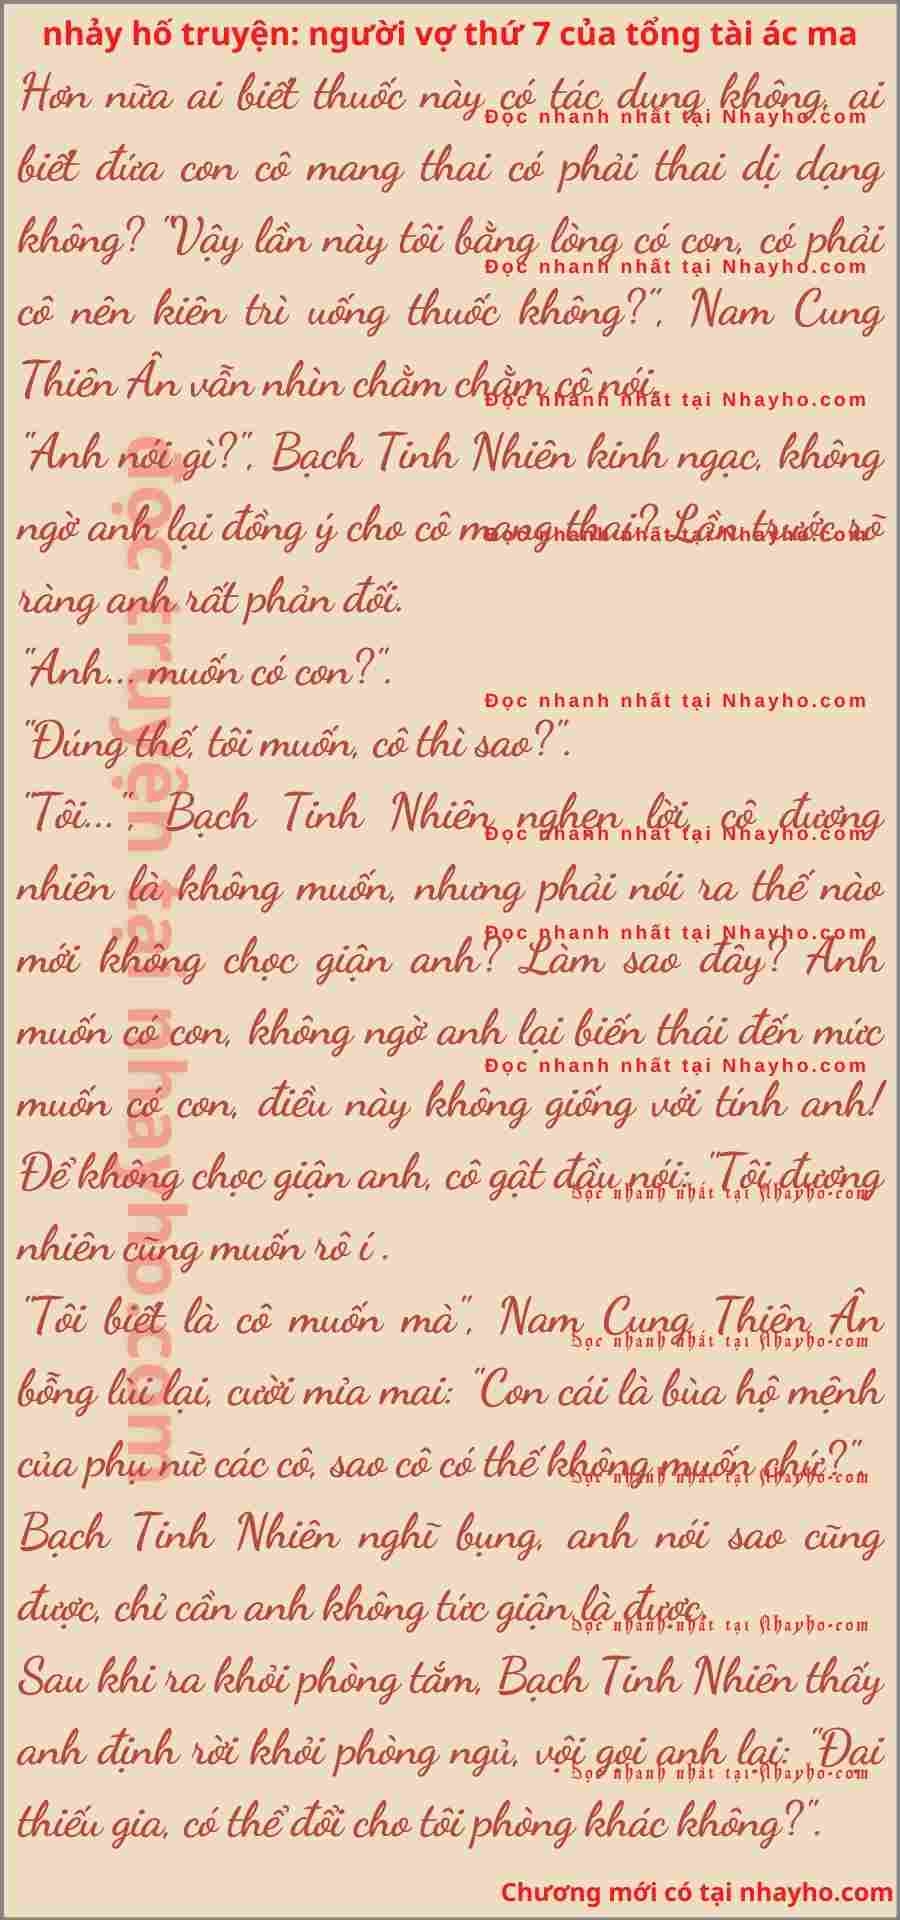 nhảy hố truyện: người vợ thứ 7 của tổng tài ác ma
Hơn nữa ai biết thuốc này có tác dụng không, ai
Đọc nhanh nhất tại Nhayho.com
biết đứa con cô mang thai có phải thai dị dạng
không? "Vậy lần này tôi bằng lòng có con, có phải
Đọc nhanh nhất tại Nhayho.com
cô nên kiên trì uống thuốc không?", Nam Cung
Thiên Ân vẫn nhìn chằm chằm cô nói.
Đọc nhanh nhất tại Nhayho.com
"Anh nói gì?", Bạch Tinh Nhiên kinh ngạc, không
ngờ anh lại đồng ý cho cô mang thai? Lần trước rõ
Đọc nhanh nhất tại Nhayho.com
ràng anh rất phản đối.
"Anh... muốn có con?".
Đọc nhanh nhất tại Nhayho.com
"Đúng thế, tôi muốn, cô thì sao?".
"Tôi...", Bạch Tinh Nhiên nghẹn lời, cô đương
Đọc nhanh nhất tại Nhayho.com
nhiên là không muốn, nhưng phải nói ra thế nào
Đọc nhanh nhất tại Nhayho.com
mới không chọc giận anh? Làm sao đây? Anh
muốn có con, không ngờ anh lại biến thái đến mức
Đọc nhanh nhất tại Nhayho.com
muốn có con, điều này không giống với tính anh!
Để không chọc giận anh, cô gật đầu nói: "Tôi đương
Đọc nhanh nhất tại Nhayho.com
nhiên cũng muốn rô í .
"Tôi biết là cô muốn mà", Nam Cung Thiên Ân
Đọc nhanh nhất tại Nhayho.com
bỗng lùi lại, cười mỉa mai: "Con cái là bùa hộ mệnh
của phụ nữ các cô, sao cô có thế không muốn chứ?".
Đọc nhanh nhất tại Nhayho.com
Bạch Tinh Nhiên nghĩ bụng, anh nói sao cũng
được, chỉ cần anh không tức giận là được.
Đọc nhanh nhất tại Nhayho.com
Sau khi ra khỏi phòng tắm, Bạch Tinh Nhiên thấy
anh định rời khỏi phòng ngủ, vội gọi anh lại: "Đại
Đọc nhanh nhất tại Nhayho.com
thiếu gia, có thể đổi cho tôi phòng khác không?".
đọc truyện tại nhayho.com
Chương mới có tại nhayho.com